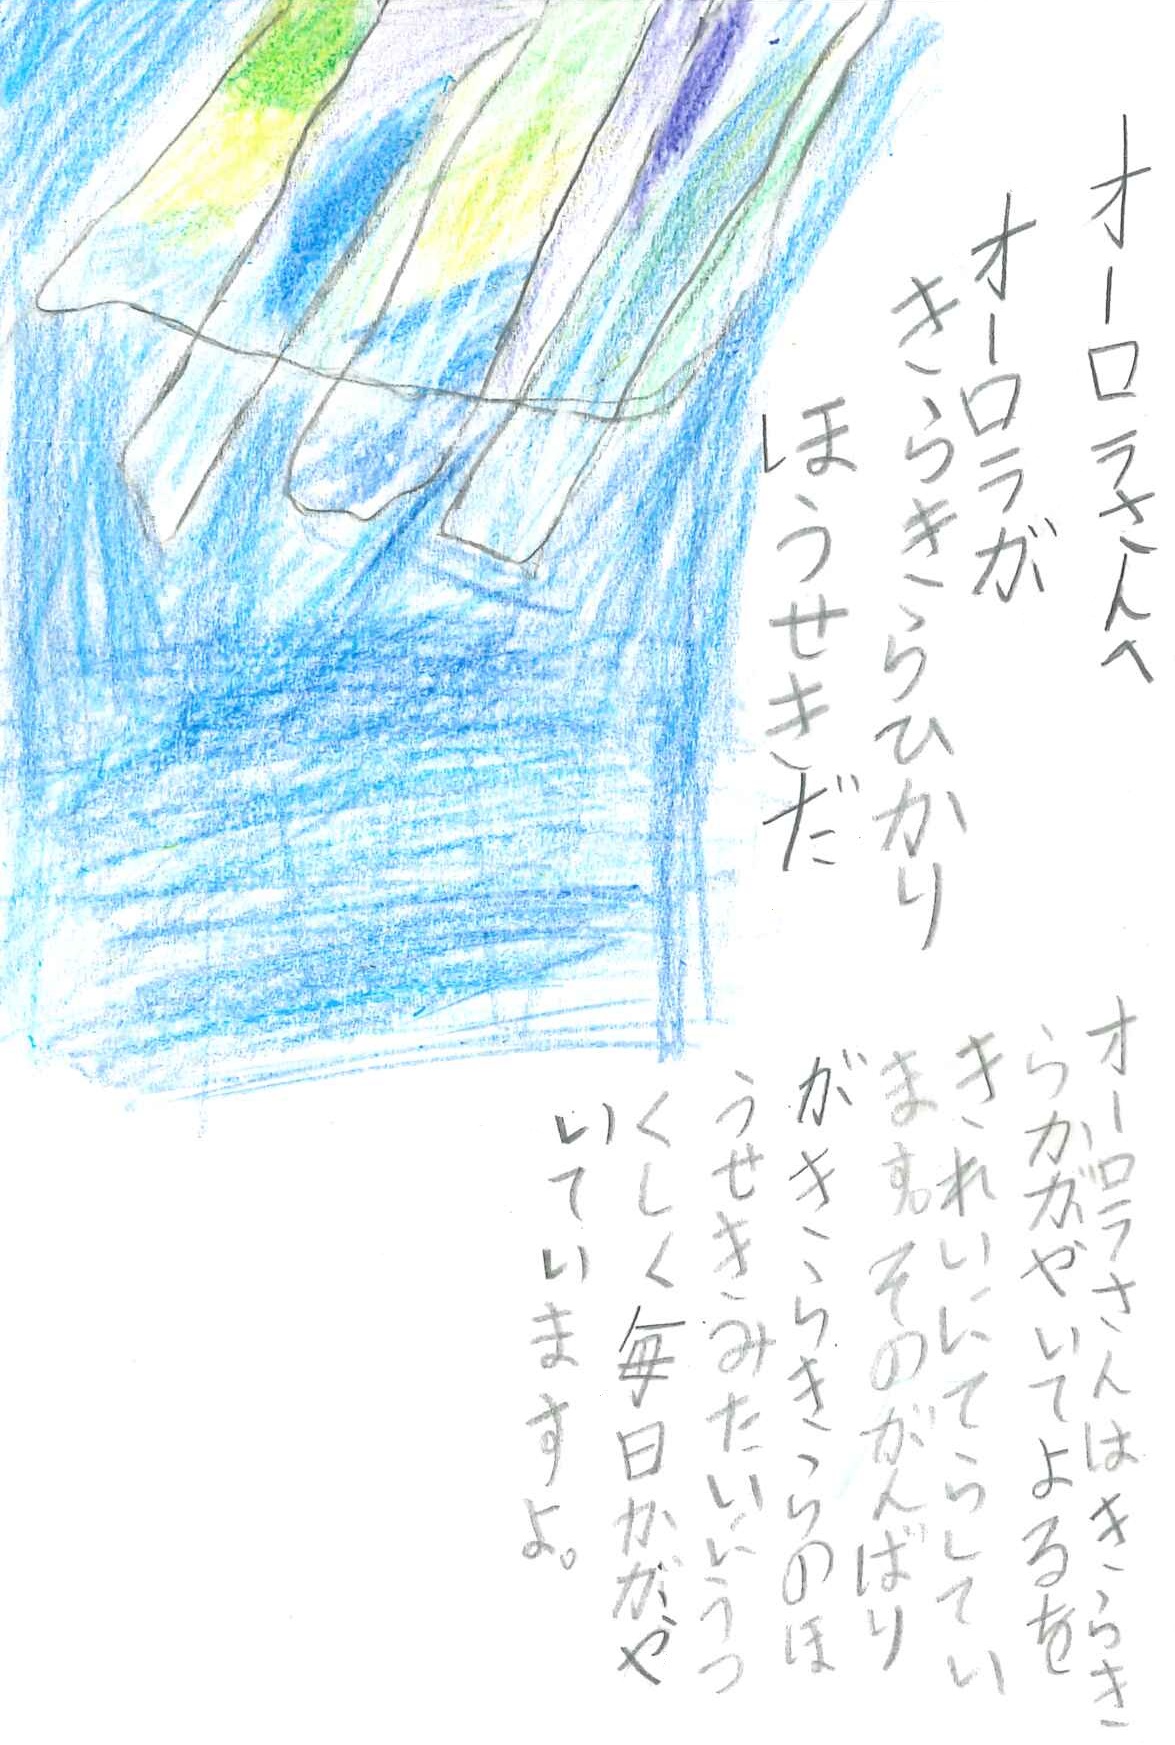 オーロラさんへ
オーロラが
きらきらひかり
ほうせきだ
オーロラさんはきらき
らかがやいてよるを
きれいにてらしてい
ます。そのがんばり
がきらきらのほ
うせきみたいにうつ
くしく毎日かがや
いていますよ。